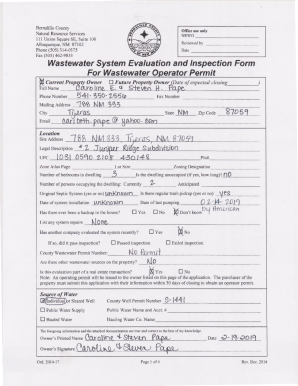 Bernalillo County
Natural Resource Services
111 Union Square SE, Suite 100
Albuquerque, NM 87102
Phone (505) 314-0375
Office use only
Reviewed by
Date
Wastewater System Evaluation and Inspection Form
For Wastewater Operator Permit
☒ Current Property Owner ☐ Future Property Owner (Date of expected closing )
Full Name Caroline E. & Steven H. Pape
Phone Number 541-350-2556 Fax Number
Mailing Address 788 NM 333
City Tijeras State NM Zip Code 87059
Email pape@yahoo.com
Location
Site Address 788 NM 333, Tijeras, NM 87059
Legal Description #2 Juniper Ridge Subdivision
UPC 1031 0590 2108 430148
Zone Atlas Page Lot Size Zoning Designation
Number of bedrooms in dwelling 3 Is the dwelling unoccupied (if yes, how long) no
Number of persons occupying the dwelling: Currently 2 Anticipated
Original Septic System (yes or no) unknown Is there regular tank pump (yes or no) yes
Date of system installation unknown Date of last pumping 02-14-2019
by American
Has there ever been a backup in the house? ☐ Yes ☐ No ☒ Don't know
List any system repairs None
Has another company evaluated the system recently? ☐ Yes ☒ No
If so, did it pass inspection? ☐ Passed inspection ☐ Failed inspection
County Wastewater Permit Number: No Permit
Are there other wastewater systems on the property? No
Is this evaluation part of a real estate transaction? ☒ Yes ☐ No
Note: An operating permit will be issued to the owner listed on this page of the application. The purchaser of the
property must submit this application with their information within 30 days of closing to obtain an operator permit.
Source of Water
Individual or Shared Well County Well Permit Number S-1441
☐ Public Water Supply Public Water Name and Acct. #
☐ Hauled Water Hauling Water Co. Name
The foregoing information and the attached documentation are true and correct to the best of my knowledge.
Owner's Printed Name Caroline & Steven Pape Date 2-19-2019
Owner's Signature Caroline & Steven Pape
Ord. 2014-17 Page 1 of 4 Rev. Dec. 2014